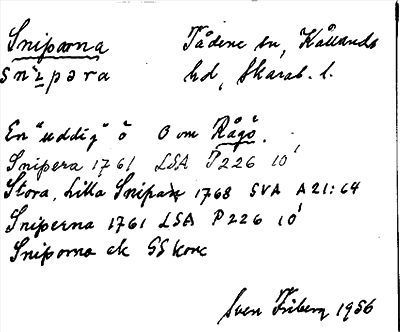 Sniporna Tådene sn, Kållands
snìpəra hd, Skarab. l.
En "uddig" ö O om Rågö.
Snipera 1761 LSA P226 10¹
Stora, Lilla Snipan 1768 SVA A21:64
Sniperna 1761 LSA P226 10¹
Sniporna ek GSkonc
Sven Friberg 1956